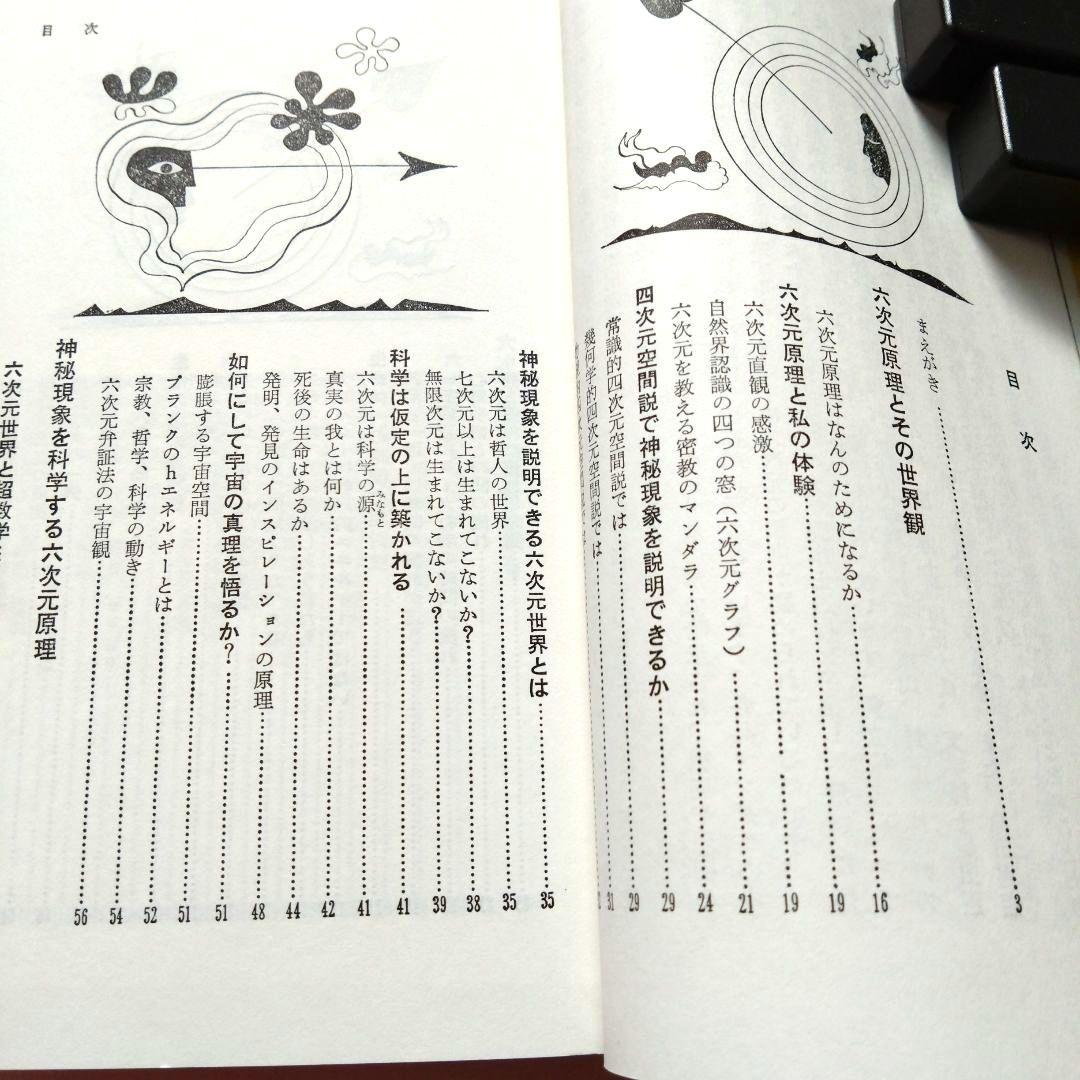 目次
まえがき 3
六次元原理とその世界観
六次元原理はなんのためになるか 16
六次元原理と私の体験 19
六次元直観の感激 19
自然界認識の四つの窓（六次元グラフ） 21
六次元を教える密教のマンダラ 24
四次元空間説で神秘現象を説明できるか 29
常識的四次元空間説では 29
幾何学的四次元空間説では 31
目次
神秘現象を説明できる六次元世界とは 35
六次元は哲人の世界 35
七次元以上は生まれてこないか? 38
無限次元は生まれてこないか? 39
科学は仮定の上に築かれる 41
六次元は科学の源 みなもと 41
真実の我とは何か 42
死後の生命はあるか 44
発明、発見のインスピレーションの原理 48
如何にして宇宙の真理を悟るか? 51
膨脹する宇宙空間 51
プランクのhエネルギーとは 52
宗教、哲学、科学の動き 54
六次元弁証法の宇宙観 56
神秘現象を科学する六次元原理
六次元世界と超数学